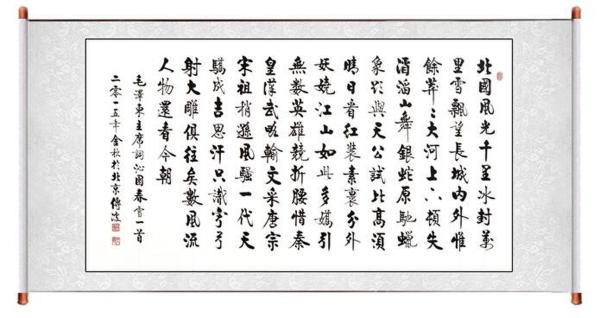 北國風光千里冰封萬
里雪飄望長城內外惟
餘莽々大河上下頓失
滔滔山舞銀蛇原馳蠟
象欲與天公試比高須
晴日看紅裝素裹分外
妖嬈江山如此多嬌引
無數英雄競折腰惜秦
皇漢武略輸文采唐宗
宋祖稍遜風騷一代天
驕成吉思汗只識彎弓
射大雕俱往矣數風流
人物還看今朝
毛澤東主席詞沁園春雪一首
二零一五年金秋於北京